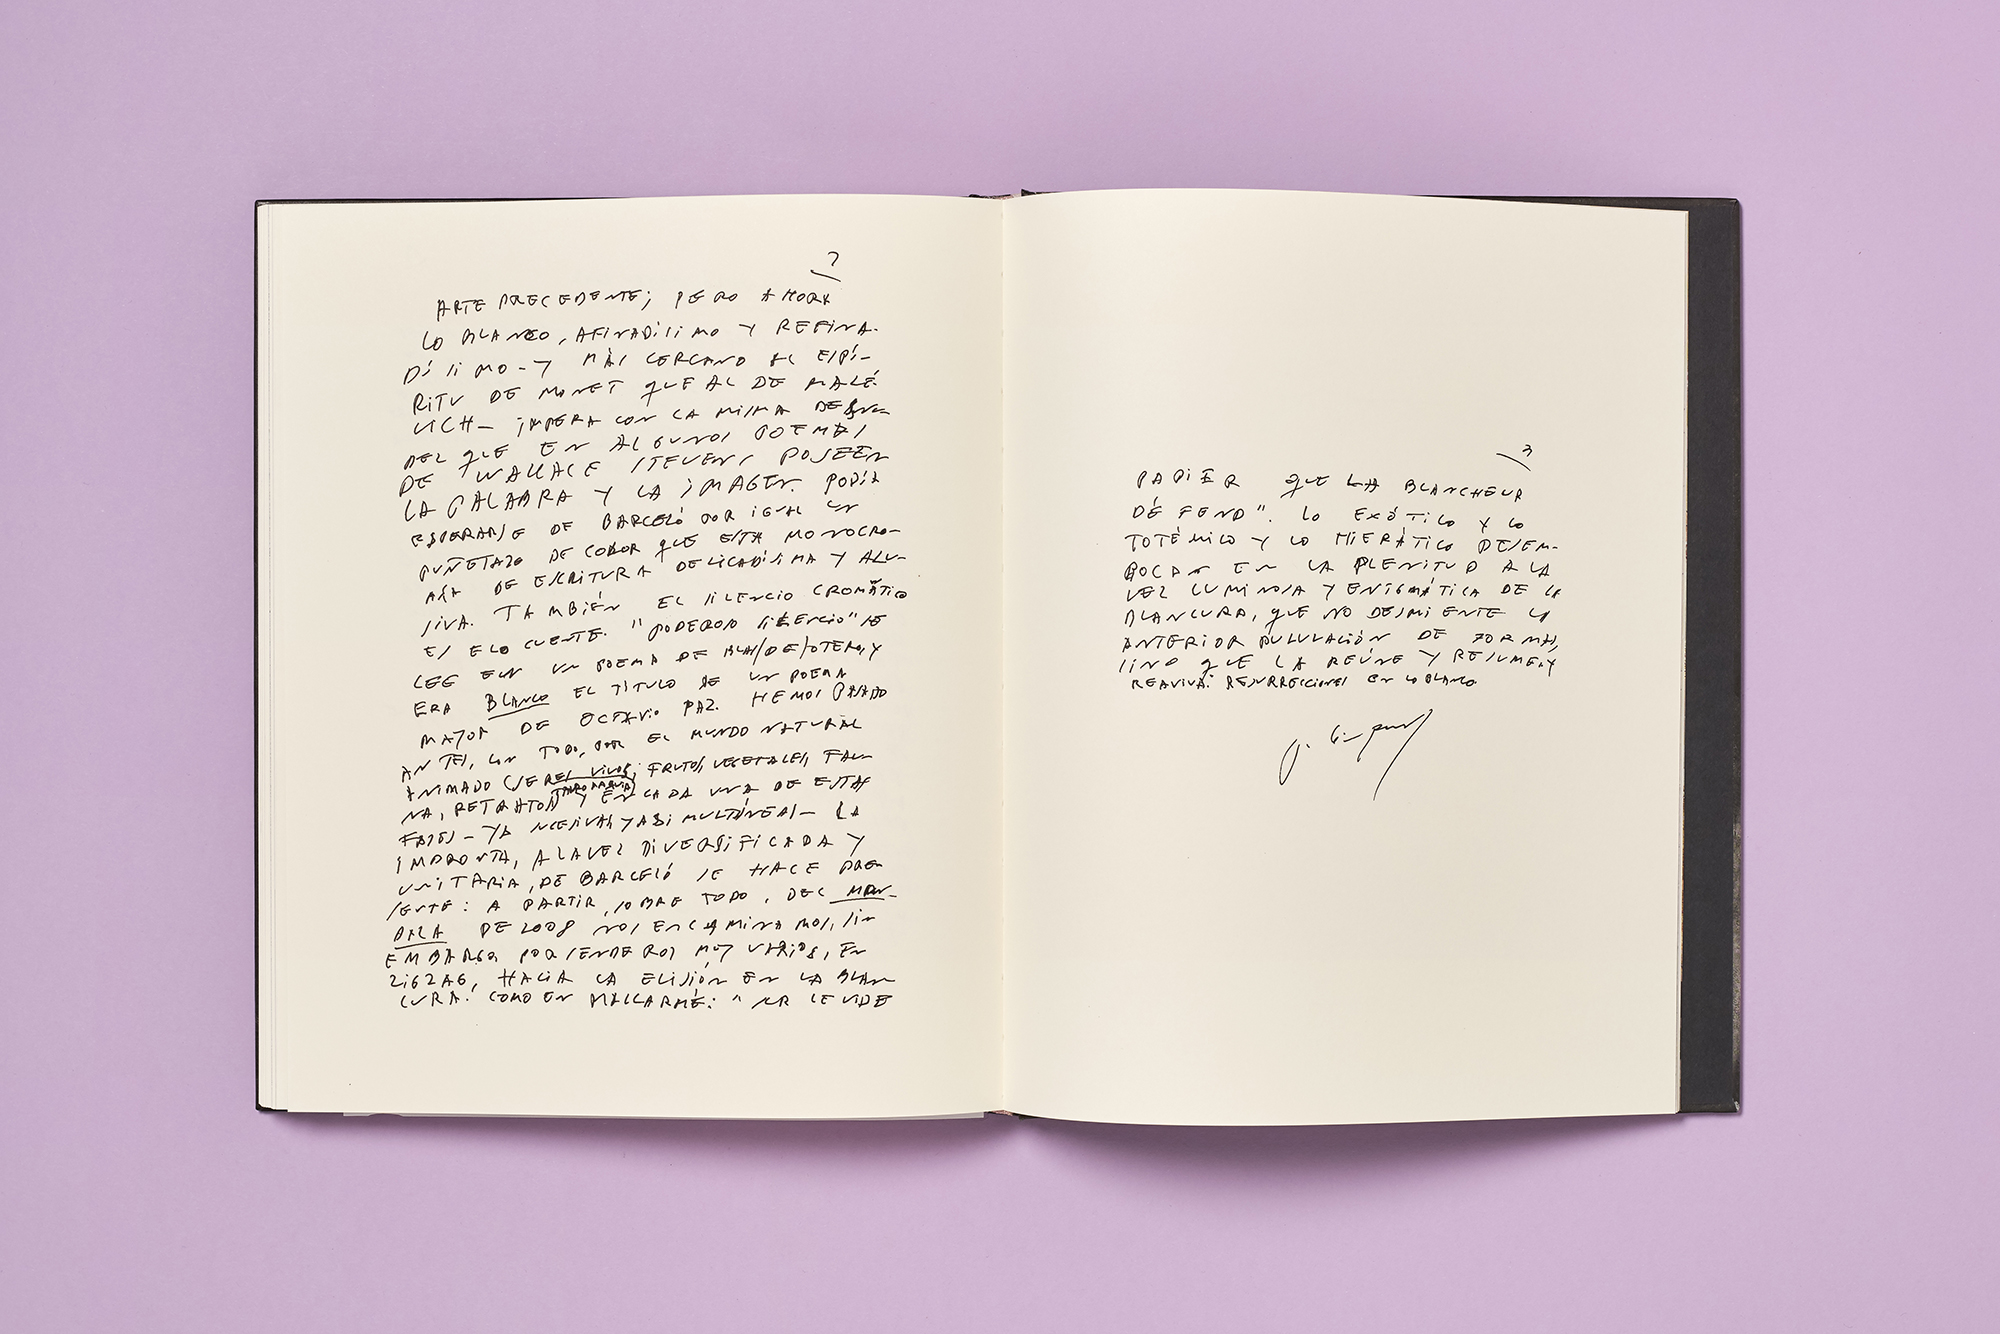 2
ARTE PRECEDENTE; PERO AHORA
LO BLANCO, AFINADÍSIMO Y REFINA-
DÍSIMO - Y MÁS CERCANO AL ESPÍ-
RITU DE MONET QUE AL DE MALÉ-
VICH - IMPERA CON LA MISMA DESNU-
DEZ QUE EN ALGUNOS POEMAS
DE WALLACE STEVENS POSEEN
LA PALABRA Y LA IMAGEN. PODÍA
ESPERARSE DE BARCELÓ POR IGUAL UN
PUÑETAZO DE COLOR QUE ESTA MONOCRO-
MÍA DE ESCRITURA DELICADÍSIMA Y ALU-
SIVA. TAMBIÉN EL SILENCIO CROMÁTICO
ES ELOCUENTE. "PODEROSO SILENCIO" SE
LEE EN UN POEMA DE BLAS DE OTERO, Y
ERA BLANCO EL TÍTULO DE UN POEMA
MAYOR DE OCTAVIO PAZ. HEMOS PASADO
ANTES, CON TODO, POR EL MUNDO NATURAL
ANIMADO (SERES VIVOS, FRUTOS, VEGETALES, FAU-
NA, RETRATOS, TAUROMAQUIA) Y EN CADA UNA DE ESTAS
FASES - YA SUCESIVAS, YA SIMULTÁNEAS - LA
IMPRONTA, A LA VEZ DIVERSIFICADA Y
UNITARIA, DE BARCELÓ SE HACE PRE-
SENTE: A PARTIR, SOBRE TODO, DEL MAN-
DALA DE 2008 NOS ENCAMINAMOS, SIN
EMBARGO, POR SENDEROS MUY VARIOS, EN
ZIGZAG, HACIA LA ELISIÓN EN LA BLAN
CURA. COMO EN MALLARMÉ: "SUR LE VIDE
3
PAPIER QUE LA BLANCHEUR
DÉFEND". LO EXÓTICO Y LO
TOTÉMICO Y LO HIERÁTICO DESEM-
BOCAN EN LA PLENITUD A LA
VEZ LUMINOSA Y ENIGMÁTICA DE LA
BLANCURA, QUE NO DESMIENTE LA
ANTERIOR PULULACIÓN DE FORMAS,
SINO QUE LA REÚNE Y RESUME, Y
REAVIVA: RESURRECCIONES EN LO BLANCO